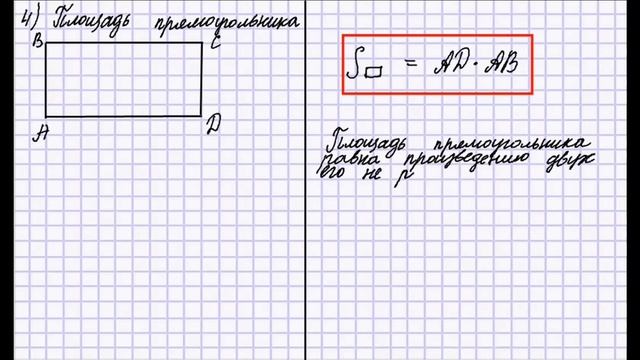 4) Площадь прямоугольника
B C
A D
S▭ = AD · AB
Площадь прямоугольника
равна произведению двух
его не р